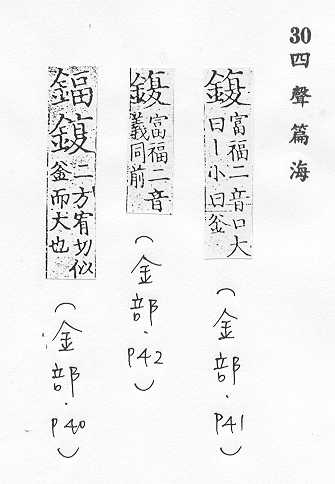 30四聲篇海
鍑富福二音口大
曰丨小曰釜
(金部.P41)
鍑富福二音
義同前
(金部.P42)
鍢鍑二方宥切似
釜而大也
(金部.P40)